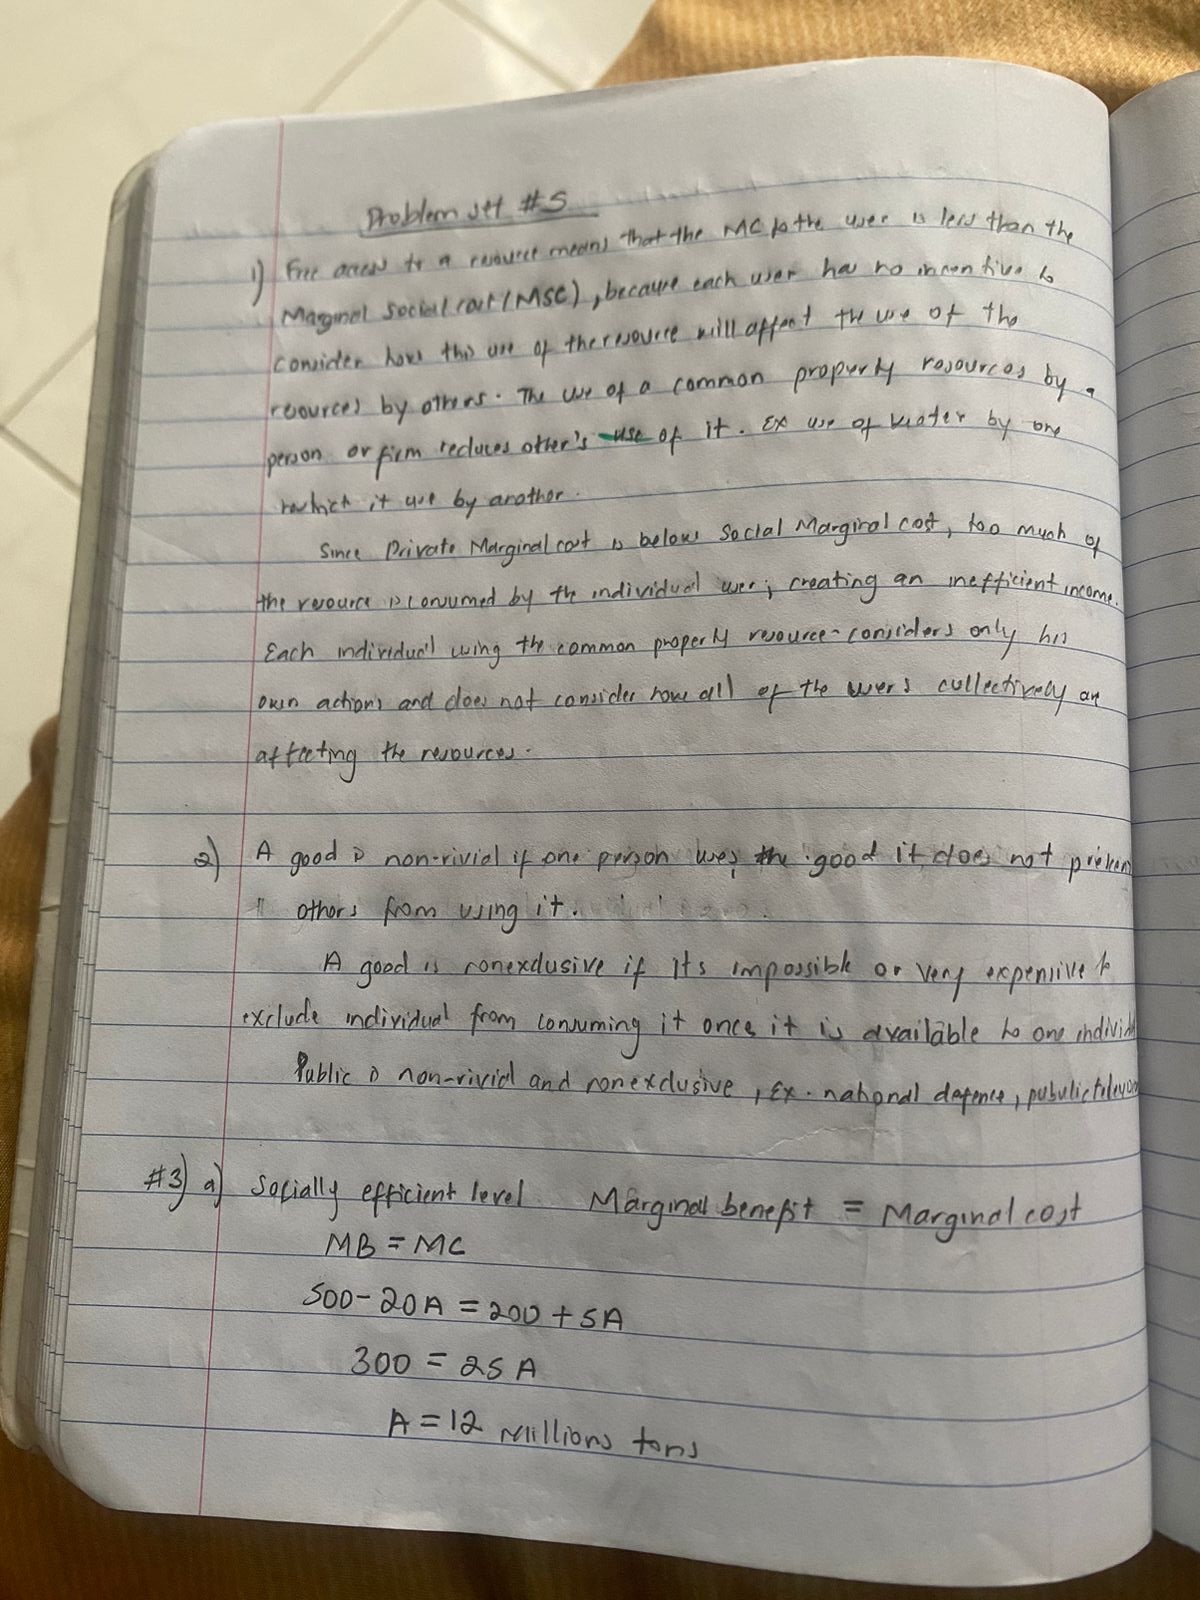 Problem set #5
1) Free access to a resource means that the MC to the user is less than the
Marginal Social cost (MSC), because each user has no incentive to
consider how this use of the resource will affect the use of the
resources by others. The use of a common property resources by a
person or firm reduces other's use of it. Ex use of water by one
it use by another.
Since Private Marginal cost is below Social Marginal cost, too much of
the resource is consumed by the individual user; creating an inefficient income.
Each individual using the common property resource - considers only his
own actions and does not consider how all of the users collectively are
affecting the resources.
2) A good is non-rivial if one person uses the good it does not prevent
others from using it.
A good is nonexclusive if its impossible or very expensive to
exclude individual from consuming it once it is available to one individ
Public is non-rivial and nonexclusive, Ex. national defence,
#3) a) Socially efficient level Marginal benefit = Marginal cost
MB = MC
500 - 20A = 200 + 5A
300 = 25A
A = 12 Millions tons